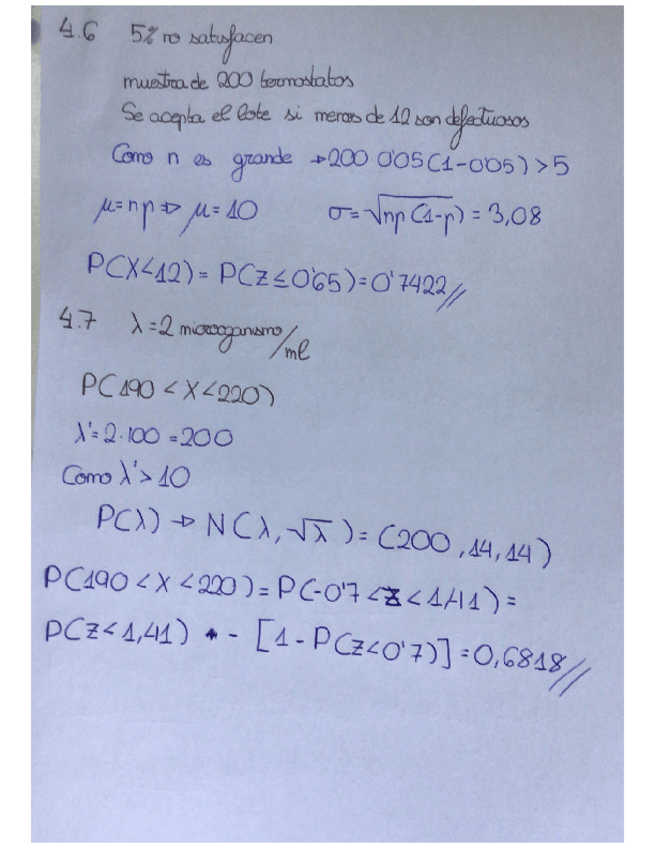 4.6 5% no satisfacen
muestra de 200 termostatos
Se acepta el lote si menos de 12 son defectuosos
Como n es grande → 200·0'05(1-0'05) > 5
μ=np ⇒ μ=10 σ=√np(1-p) = 3,08
P(X<12) = P(Z≤0'65) = 0'7422//
4.7 λ=2 microorganismo/ml
P(190 < X < 220)
λ'=2·100=200
Como λ'>10
P(λ) → N(λ,√λ) = (200, 14,14)
P(190 < X < 220) = P(-0'7 < Z < 1,41) =
P(Z < 1,41) - [1 - P(Z<0'7)] = 0,6818//